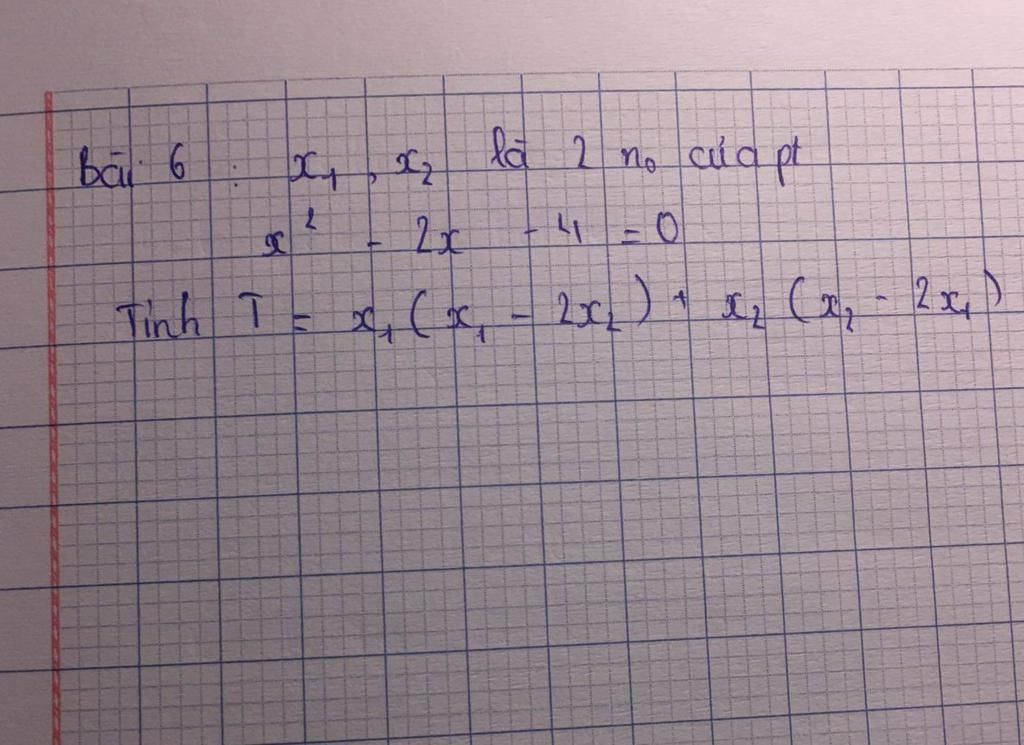 Bài 6 : x₁, x₂ là 2 n₀ của pt
x² - 2x - 4 = 0
Tính T = x₁(x₁ - 2x₂) + x₂(x₂ - 2x₁)